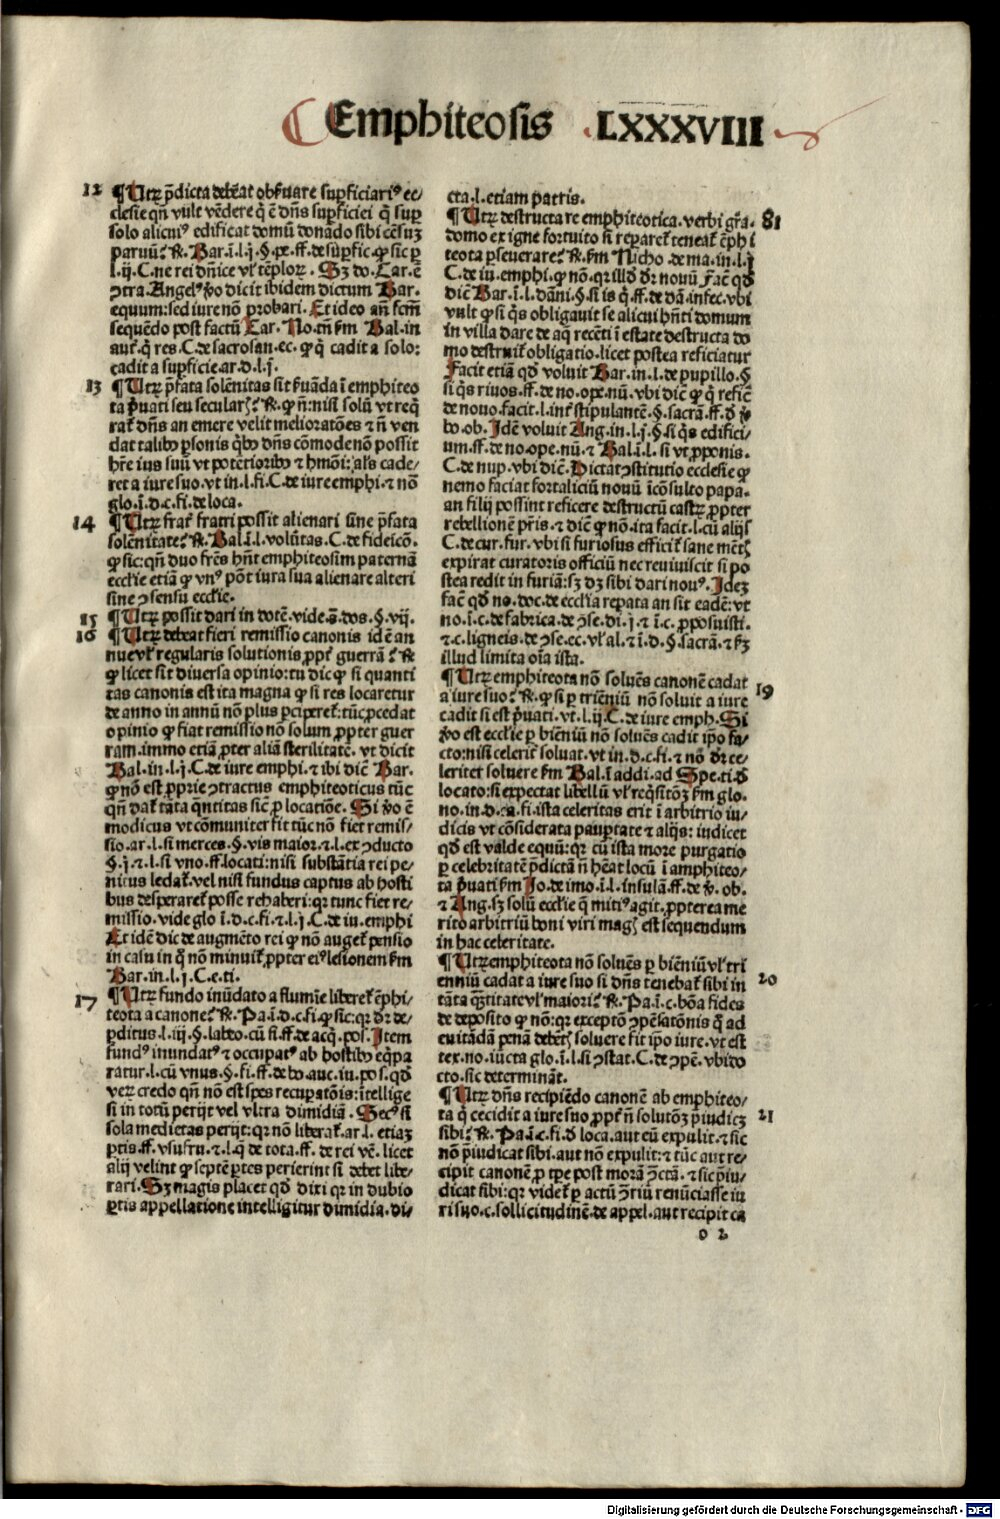 Emphiteosis .LXXXVIII
12 ¶Utrum p̃dicta debeat obseruare sup̃ficiariꝰ ec/
clesie qñ vult vẽdere q̃ ẽ dñs sup̃ficiei q̃ sup̃
solo alicuiꝰ edificat domũ donãdo sibi cẽsuʒ
paruũ? ℞. Bar.ĩ.l.j.§.pe.ff.de sup̃fic.ꝙ sic ꝑ
l.ij.C.ne rei dñice vľ tẽploꝝ. Sʒ do.Car.ẽ
ꝯtra.Angelꝰ ꝟo dicit ibidem dictum Bar.
equum:sed iure nõ probari. Et ideo añ fcm̃
sequẽdo post factũ Car. No.tñ ẜm Bal.in
aut̃.q̃ res.C.de sacrosan.ec.ꝙ q̃ cadit a solo:
cadit a sup̃ficie.ar.d.l.j.
13 ¶Utꝝ p̃fata solẽnitas sit ẜuãda ĩ emphiteo
ta p̃uati seu secularꝭ? ℞.ꝙ ñ:nisi solũ vt reqͥ
rat̃ dñs an emere velit melioratões ⁊ ñ ven
dat talibꝰ ꝑsonis qͥbꝰ dñs cõmode nõ possit
hr̃e ius suũ vt potẽtioribꝰ ⁊ hmõi:als cade/
ret a iure suo.vt in.l.fi.C.de iure emphi.⁊ nõ
glo.ĩ.d.c.fi.de loca.
14 ¶Utꝝ frat̃ fratri possit alienari sine p̃fata
solẽnitate? ℞.Bal.ĩ.l.volũtas.C.de fideicõ.
ꝙ sic:qñ duo fr̃es hñt emphiteosim paternã
eccľie etiã ꝙ vnꝰ põt iura sua alienare alteri
sine ꝯsensu eccľie.
15 ¶Utꝝ possit dari in dotẽ.vide.s̃.dos.§.vij.
16 ¶Utꝝ debeat fieri remissio canonis idẽ an
nue vľ regularis solutionis ꝓpt̃ guerrã? ℞
ꝙ licet sint diuersa opinio:tu dic ꝙ si quanti
tas canonis est ita magna ꝙ si res locaretur
de anno in annũ nõ plus ꝑciperet̃:tũc ꝓcedat
opinio ꝙ fiat remissio nõ solum ꝓpter guer
ram.immo etiã ꝓter aliã sterilitatẽ. vt dicit
Bal.in.l.j.C.de iure emphi.⁊ ibi dicẽ Bar.
ꝙ nõ est ꝓprie ꝯtractus emphiteoticus tũc
qñ dat̃ tãta qñtitas sic̃ ꝓ locatiõe. Si ꝟo ẽ
modicus vt cõmuniter fit tũc nõ fiet remis/
sio.ar.l.si merces.§.vis maior.⁊.l.ex ꝯducto
§.j.⁊.l.si vno.ff.locati:nisi substãtia rei pe/
nitus ledat̃.vel nisi fundus captus ab hosti
bus desperaret̃ posse rehaberi:qꝛ tunc fiet re/
missio.vide glo ĩ.d.c.fi.⁊.l.j.C.de iu.emphi
Et idẽ dic de augmẽto rei ꝙ nõ auget̃ pensio
in casu in q̃ nõ minuit̃ ꝓpter eiꝰ lesionem ẜm
Bar.in.l.j.C.e.ti.
17 ¶Utꝝ fundo inũdato a flumĩe liberet̃ ẽphi/
teota a canone? ℞. Pa.ĩ.d.c.fi.ꝙ sic:qꝛ dr̃ de/
ꝑditus.l.iij.§.labeo.cũ si.ff.de acq̃.pos. Item
fundꝰ inundatꝰ ⁊ occupatꝰ ab hostibꝰ eq̃pa
ratur.l.cũ vnus.§.fi.ff.de bo.auc.iu.pos.qð
veꝝ credo qñ nõ est spes recuꝑatõis:ĩtellige
si in totũ perijt vel vltra dimidiã. Secꝰ si
sola medietas perijt:qꝛ nõ liberat̃.ar.l. etiaʒ
ꝑtis.ff.vsufru.⁊.l.q̃ de tota.ff.de rei vẽ. licet
alij velint ꝙ septẽ ꝑtes perierint si debet libe/
rari. Sʒ magis placet qð dixi qꝛ in dubio
ꝑtis appellatione intelligitur dimidia.di/
cta.l.etiam patris.
¶Utꝝ destructa re emphiteotica.verbi gr̃a. 81
domo ex igne fortuito si reparet̃ teneat̃ ẽphi
teota ꝑseuerare? ℞.ẜm Nicho.de ma.in.l.j
C.de iu.emphi.ꝙ nõ.qꝛ illð dr̃ nouũ. Fac̃ qð
dicẽ Bar.ĩ.l.dãni.§.si is q̃.ff.de dã.infec.vbi
vult ꝙ si q̃s obligauit se alicui hñti domum
in villa dare de aq̃ recẽti ĩ estate destructa do
mo destruit̃ obligatio.licet postea reficiatur
Facit etiã qð voluit Bar.in.l.de pupillo.§
si q̃s riuos.ff.de no.ope.nũ.vbi dicẽ ꝙ q̃ reficẽ
de nouo.facit.l.int̃ stipulantẽ.§.sacrã.ff.ð ꝟ
bo.ob. Idẽ voluit Ang.in.l.j.§.si q̃s edifici/
um.ff.de no.ope.nũ.⁊ Bal.ĩ.l.si vt ꝓponis.
C.de nup.vbi dicẽ. Dictat ꝯstitutio ecclesie ꝙ
nemo faciat fortaliciũ nouũ ĩcõsulto papa.
an filij possint reficere destructũ castꝝ ꝓpter
rebellionẽ pr̃is.⁊ dicẽ ꝙ nõ.ita facit.l.cũ alijs
C.de cur.fur.vbi si furiosus efficit̃ sane mẽtꝭ
expirat curatoris officiũ nec reuiuiscit si po
stea redit in furiã:sʒ dʒ sibi dari nouꝰ. Ideʒ
fac̃ qð no.doc.de eccľia reꝑata an sit eadẽ:vt
no.ĩ.c.de fabrica.de ꝯse.di.j.⁊ ĩ.c.ꝓposuisti.
⁊.c.ligneis.de ꝯse.ec.vľ al.⁊ ĩ.d.§.sacrã.⁊ ẜʒ
illud limita oĩa ista.
¶Utꝝ emphiteota nõ soluẽs canonẽ cadat 19
a iure suo? ℞.ꝙ si ꝑ triẽniũ nõ soluit a iure
cadit si est p̃uati.vt.l.ij.C.de iure emph. Si
ꝟo est eccľie ꝑ biẽniũ nõ soluẽs cadit ip̃o fa/
cto:nisi celerit̃ soluat.vt in.d.c.fi.⁊ nõ dr̃ ce/
leriter soluere ẜm Bal.ĩ addi.ad Spe.ti.ð
locato:si expectat libellũ vľ reqͥsitõʒ ẜm glo.
no.in.d.c.fi.ista celeritas erit ĩ arbitrio iu/
dicis vt cõsiderata pauꝑtate ⁊ alijs:iudicet
qð est valde equũ:qꝛ cũ ista more purgatio
ꝑ celebritatẽ p̃dictã ñ heat locũ ĩ amphiteo/
ta p̃uati ẜm Jo.de imo.ĩ.l.insulã.ff.de ꝟ.ob.
⁊ Ang.sʒ solũ eccľie q̃ mitiꝰ agit.ꝓpterea me
rito arbitriũ boni viri magꝭ est sequendum
in hac celeritate.
¶Utꝝ emphiteota nõ soluẽs ꝑ biẽniũ vľ tri 20
enniũ cadat a iure suo si dñs tenebat̃ sibi in
tãta q̃titate vľ maiori? ℞. Pa.ĩ.c.bõa fides
de deposito ꝙ nõ:qꝛ exceptõ ꝯpẽsatõnis q̃ ad
euitãdã penã debetꝭ soluere fit ip̃o iure.vt est
tex.no.iũcta glo.ĩ.l.si ꝯstat.C.de ꝯpẽ.vbi do
cto.sic determinãt.
¶Utꝝ dñs recipiẽdo canonẽ ab emphiteo/
ta q̃ cecidit a iure suo ꝓpt̃ ñ solutõʒ p̃iudicʒ 21
sibi? ℞. Pa.ĩ.c.fi.ð loca.aut eũ expulit.⁊ sic
nõ p̃iudicat sibi.aut nõ expulit:⁊ tũc aut re/
cipit canonẽ ꝓ tꝑe post morã ꝯctã.⁊ sic p̃iu/
dicat sibi:qꝛ videt̃ ꝑ actũ ꝯ̃riũ renũciasse iu
ri suo.c.sollicitudinẽ.de appel.aut recipit ca
o 2
Digitalisierung gefördert durch die Deutsche Forschungsgemeinschaft - DFG